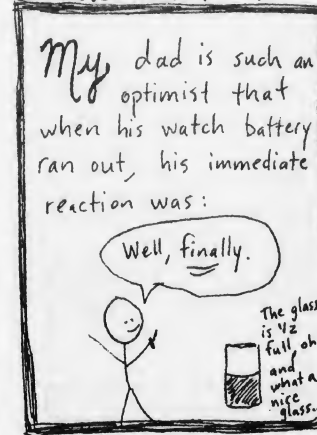 My dad is such an
optimist that
when his watch battery
ran out, his immediate
reaction was:
Well, finally.
The glass
is 1/2
full oh
and
what a
nice
glass.